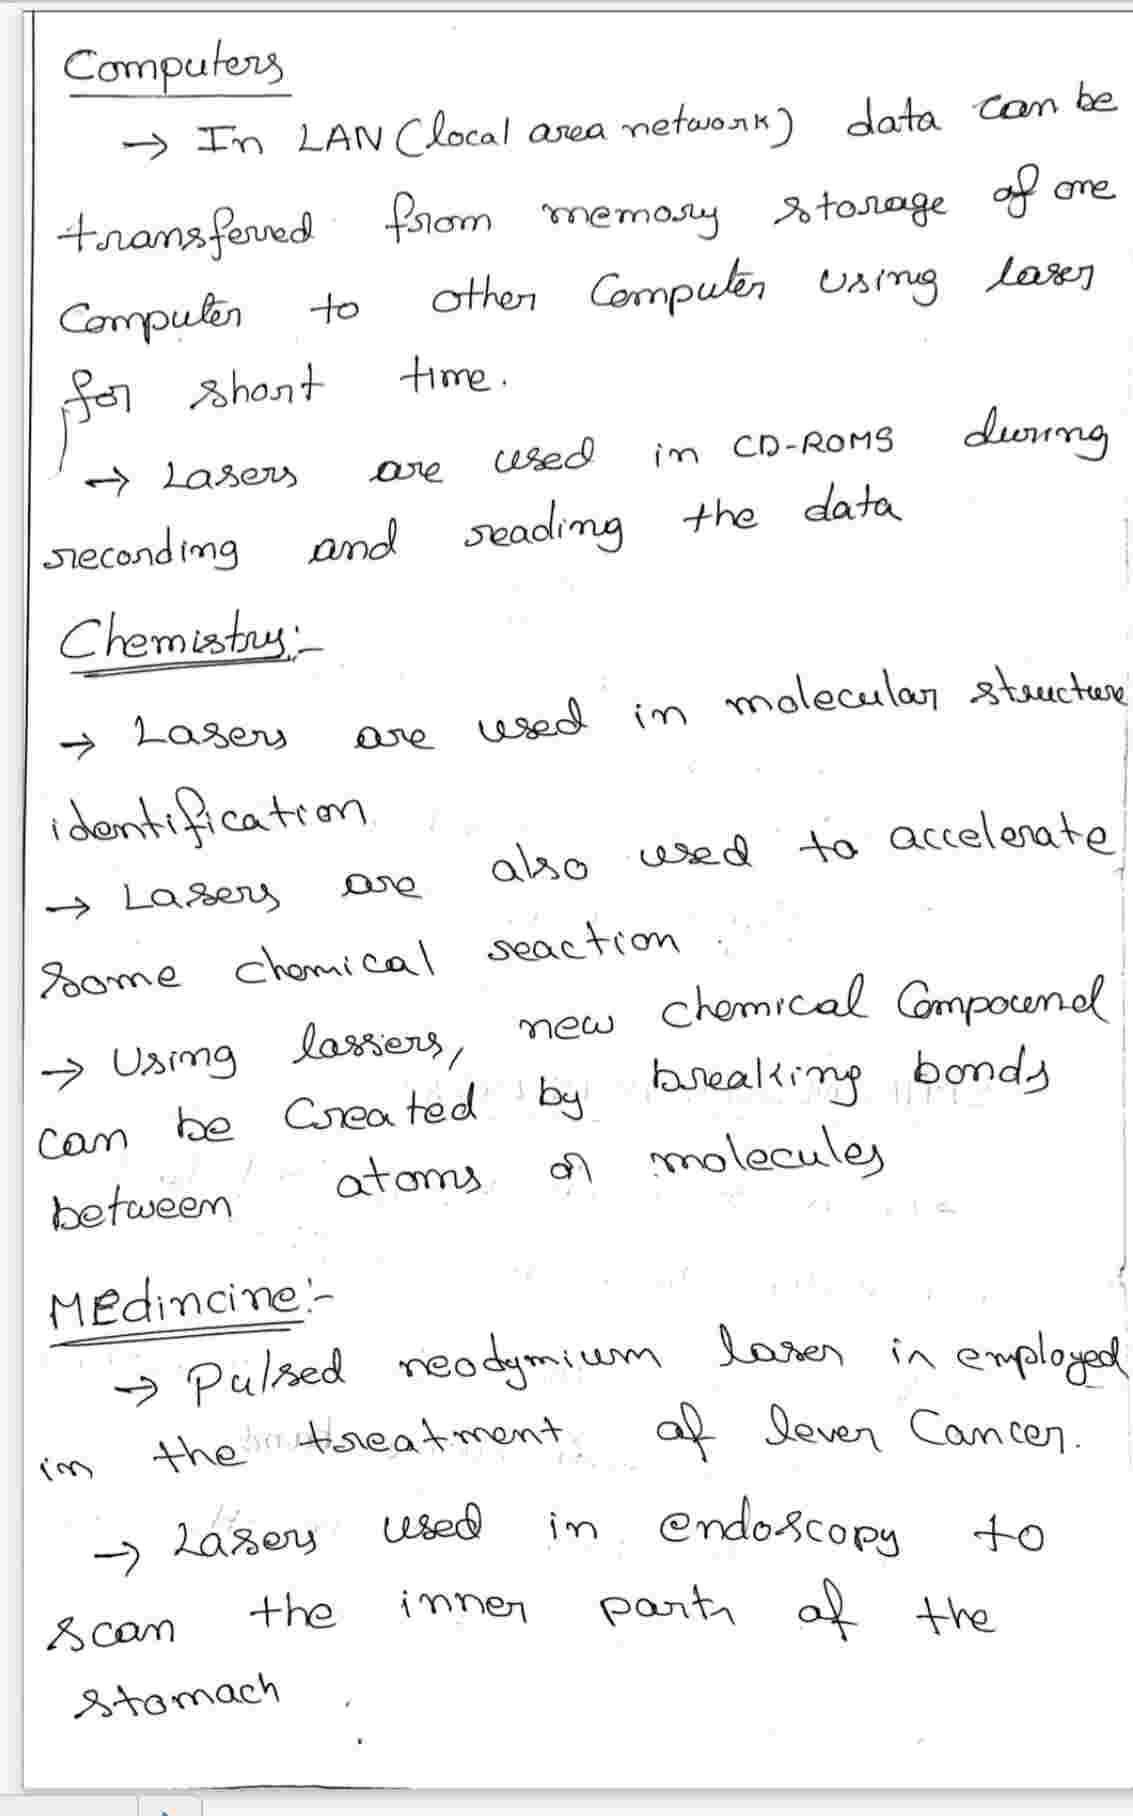 Computers
→ In LAN (local area network) data can be
transferred from memory storage of one
Computer to other Computer using laser
for short time.
→ Lasers are used in CD-ROMS during
recording and reading the data
Chemistry:-
→ Lasers are used in molecular structure
identification
→ Lasers are also used to accelerate
some chemical reaction.
→ Using lassers, new chemical Compound
can be Created by breaking bonds
between atoms or molecules
MEdincine:-
→ Pulsed neodymium laser in employed
in the treatment of lever Cancer.
→ Lasers used in endoscopy to
scan the inner parts of the
stomach.